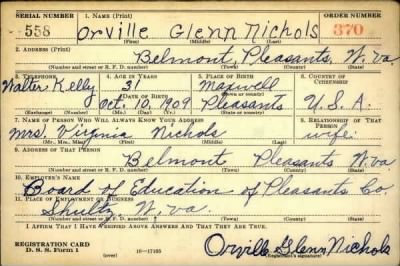 SERIAL NUMBER 1. NAME (Print) ORDER NUMBER
558 Orville Glenn Nichols 370
(First) (Middle) (Last)
2. ADDRESS (Print)
Belmont, Pleasants, W. Va.
(Number and street) (Town) (County) (State)
3. TELEPHONE 4. AGE IN YEARS 5. PLACE OF BIRTH 6. COUNTRY OF CITIZENSHIP
Walter Kelly 31 Maxwell
DATE OF BIRTH (Town or county)
Oct. 10, 1909 Pleasants U.S.A.
(Exchange) (Number) (Mo.) (Day) (Yr.) (State or country)
7. NAME OF PERSON WHO WILL ALWAYS KNOW YOUR ADDRESS 8. RELATIONSHIP OF THAT PERSON
Mrs. Virginia Nichols wife
(Mr., Mrs., Miss) (First) (Middle) (Last)
9. ADDRESS OF THAT PERSON
Belmont Pleasants W. Va
(Number and street) (Town) (County) (State)
10. EMPLOYER'S NAME
Board of Education of Pleasants Co.
11. PLACE OF EMPLOYMENT OR BUSINESS
Shultz W. Va.
(Number and street) (Town) (County) (State)
I AFFIRM THAT I HAVE VERIFIED ABOVE ANSWERS AND THAT THEY ARE TRUE.
REGISTRATION CARD
D. S. S. Form 1 (over) 16-17105 Orville Glenn Nichols
(Registrant's signature)